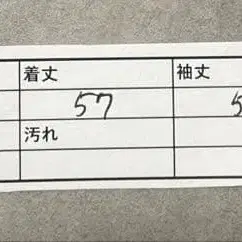 着丈 袖丈
57
汚れ